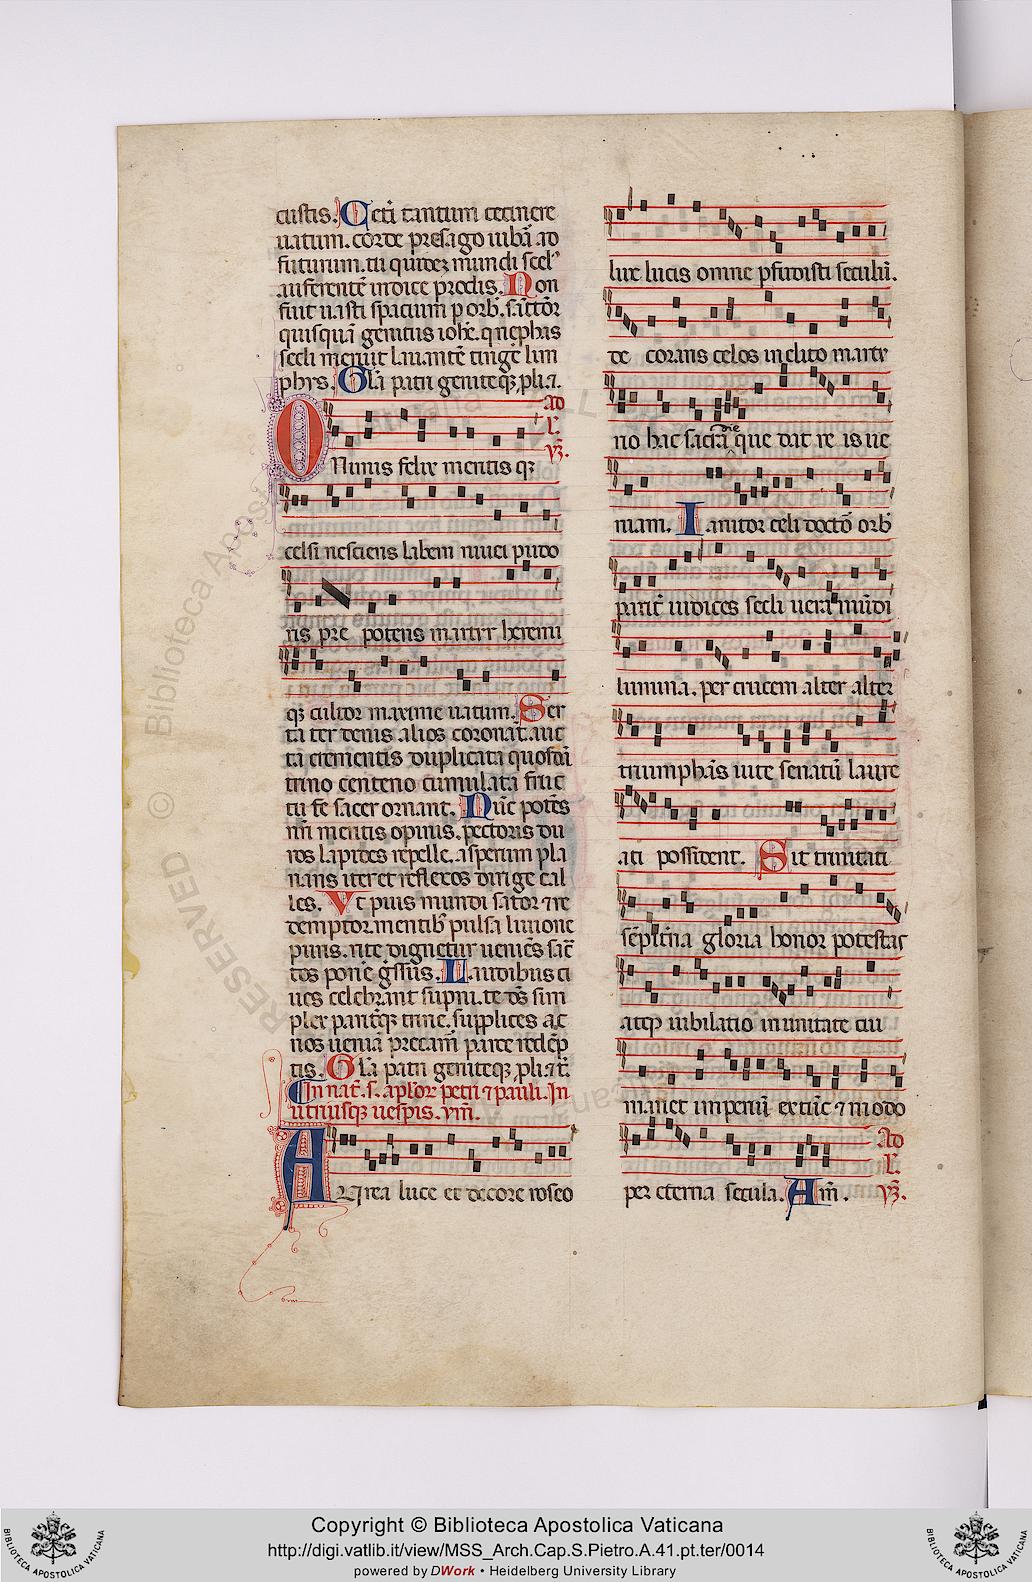 custis. Ceti tantum cecinere
uatum. corde presago iubā ad
futurum. tu quideʒ mundi scel᷒
auferentē indice prodis. Non
fuit uasti spacium p orb̄. sāctior
quisquā genitus iohē. q nephas
secli meruit lauantē tinge lim
phys. Glā patri geniteqʒ pli. ⁊.
ad
l̄.
yʒ̄.
O Nimis felix meritis qʒ
celsi nesciens labem niuei pudo
ris pre potens martyr heremi
qʒ cultor maxime uatum. Ser
ta ter denis alios coronāt. auc
ta crementis duplicata quosdā
trino centeno cumulata fruc
tu te sacer ornant. Nūc potēs
nr̄i meritis opimis. pectoris du
ros lapides repelle. asperum pla
nans iter et reflexos dirige cal
les. Vt pius mundi sator ⁊ re
demptor. mentib᷒ pulsa liuione
puris. rite dignetur ueniēs sāc̄
tos ponē gr̄ssus. Laudibus ci
ues celebrant supni. te d̄s sim
plex parit̄qʒ trine. supplices ac
nos ueniā precam̄. parce redēp
tis. Glā patri geniteqʒ pli. ⁊ t̄.
In nat̄. s. apl̄or petri ⁊ pauli. In
utriusqʒ uespis. ym̄.
A Vrea luce et decore roseo
lux lucis omne pfudisti seculū.
de corans celos inclito marty
rio hac sacrā die que dat re is ue
niam. Ianitor celi doctō orb̄
parit̄ iudices secli uera mūdi
lumina. per crucem alter alter
triumphās uite senatū laure
ati possident. Sit trinitati
sēpit̄na gloria honor potestas
atqʒ iubilatio in unitate cui
manet imperiū ex tūc ⁊ modo
ad
l̄.
per eterna secula. Am̄. yʒ̄.
Copyright © Biblioteca Apostolica Vaticana
http://digi.vatlib.it/view/MSS_Arch.Cap.S.Pietro.A.41.pt.ter/0014
powered by DWork • Heidelberg University Library
BIBLIOTECA APOSTOLICA VATICANA
BIBLIOTECA APOSTOLICA VATICANA